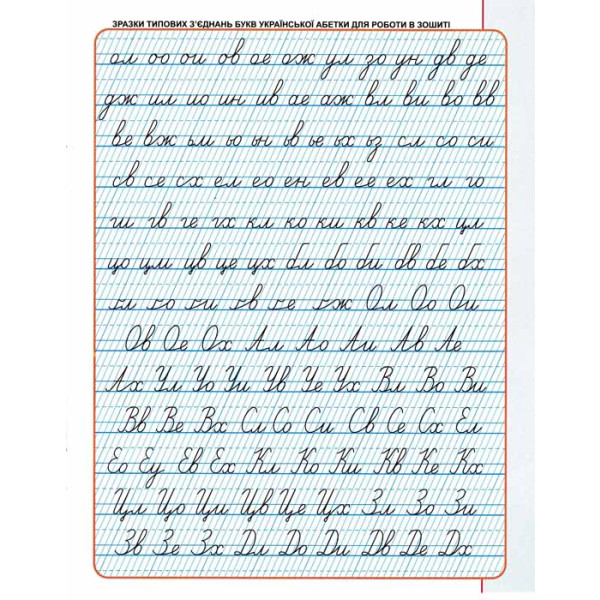 ЗРАЗКИ ТИПОВИХ З'ЄДНАНЬ БУКВ УКРАЇНСЬКОЇ АБЕТКИ ДЛЯ РОБОТИ В ЗОШИТІ
ол оо ои ов ое ож ул зо ун дв де
дж ил ио ин ив ае аж вл ви во вв
ве вж ьм ьо ьн ьв ье ьх ьз сл со си
св се сх ел ео ен ев ее ех гл го
ги гв ге гх кл ко ки кв ке кх цл
цо цм цв це цх бл бо би бв бе бх
ґл ґо ґи ґв ґе ґж Ол Оо Ои
Ов Ое Ох Ал Ао Аи Ав Ае
Ах Ул Уо Уи Ув Уе Ух Вл Во Ви
Вв Ве Вх Сл Со Си Св Се Сх Ел
Ео Еу Ев Ех Кл Ко Ки Кв Ке Кх
Цл Цо Ци Цв Це Цх Зл Зо Зи
Зв Зе Зх Дл До Ди Дв Де Дх